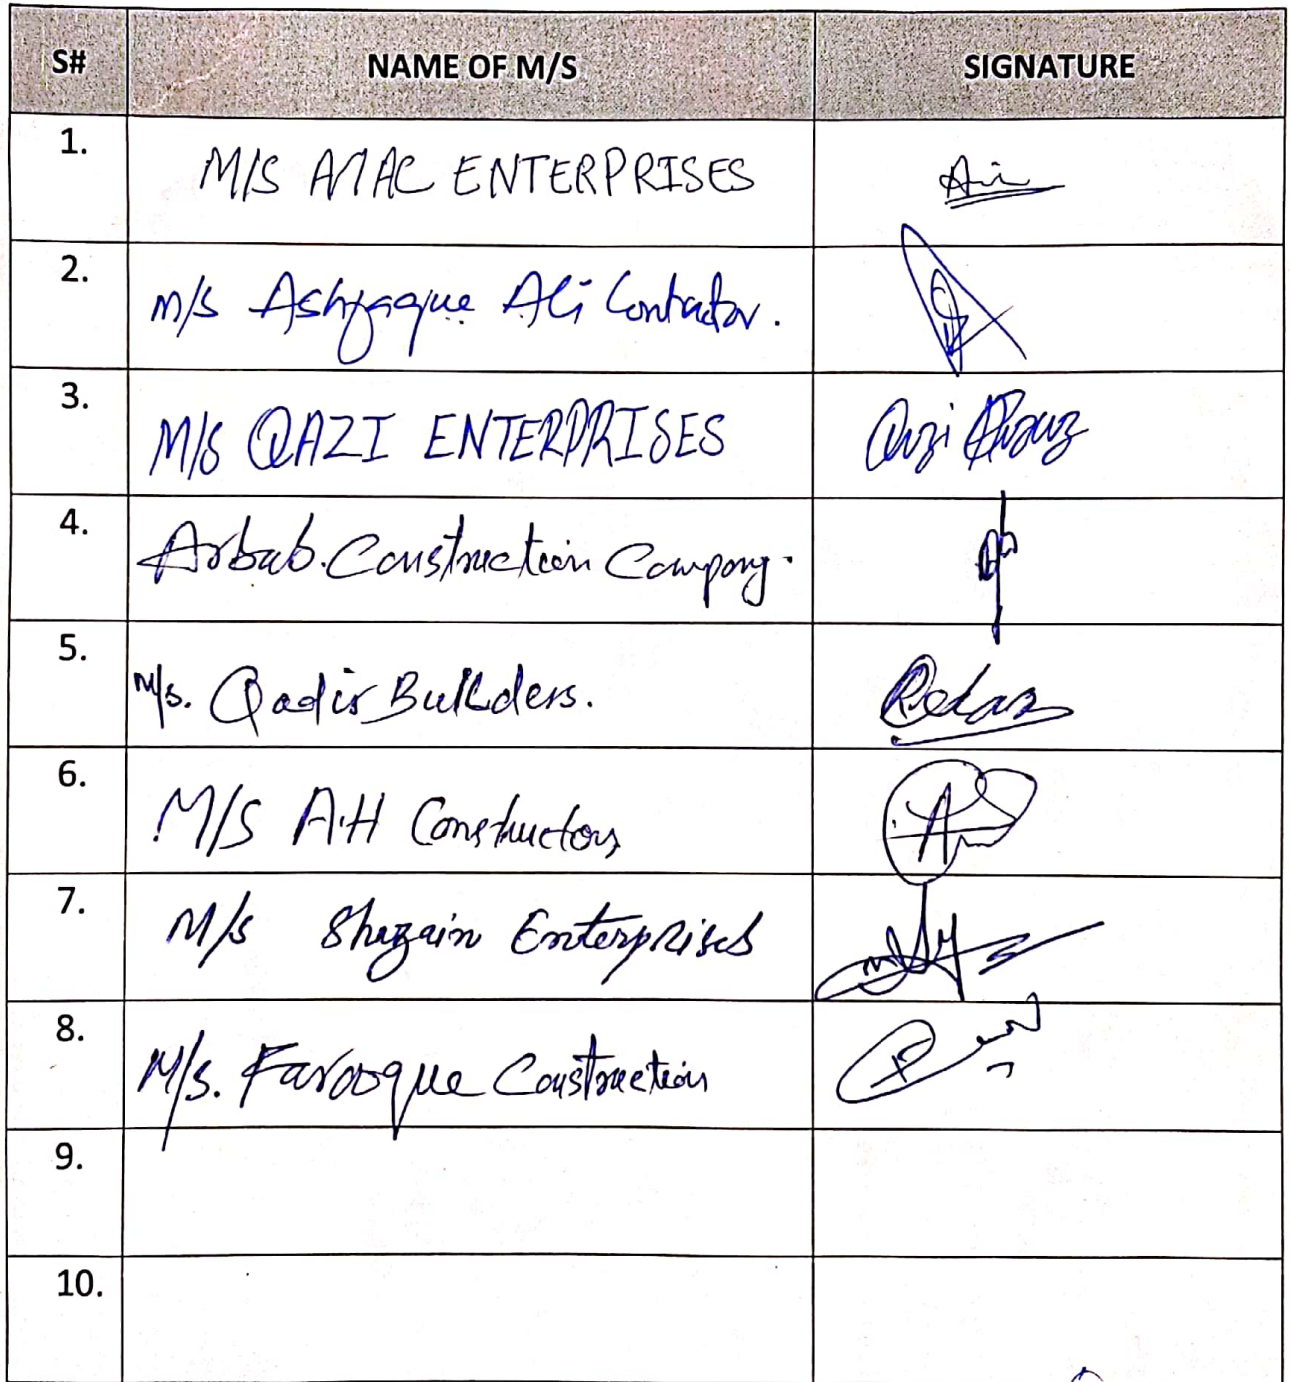 S# NAME OF M/S SIGNATURE
1. M/S ENTERPRISES
2. M/S Ashfaque Ali Contractor.
3. M/S QAZI ENTERPRISES Qazi
4. Arbab. Construction Company.
5. M/s. Qadir Builders.
6. M/S A.H Constructors
7. M/s Shezain Enterprises
8. M/s. Farooque Construction
9.
10.